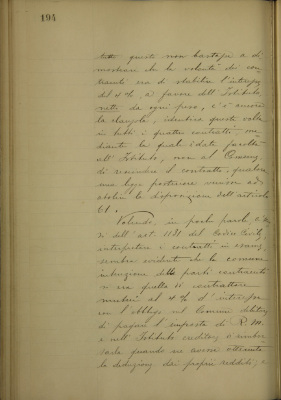 194
tutto questo non bastasse a di
mostrare che la volontà dei con
traenti era di stabilire l'interesse
del 4%, a favore dell'Istituto,
netto da ogni peso, v'è ancora
la clausola, identica questa volta
in tutti i quattro contratti, me
diante la quale è data facoltà
all'Istituto, non al Comune,
di rescindere il contratto, qualora
una legge posteriore venisse ad
abolire la disposizione dell'articolo
61.
Volendo, in poche parole,
dell'art. 1131 del Codice Civile,
interpretare i contratti in
sembra evidente che la comune
intenzione delle parti contraenti
si era quella di contrattare
mutui al 4% d'interesse
con l'obbligo nel Comune debitore
di pagare l'imposta di R. M.
e nell'Istituto creditore di
sarla quando ne avesse ottenuta
la deduzione dai propri redditi; e